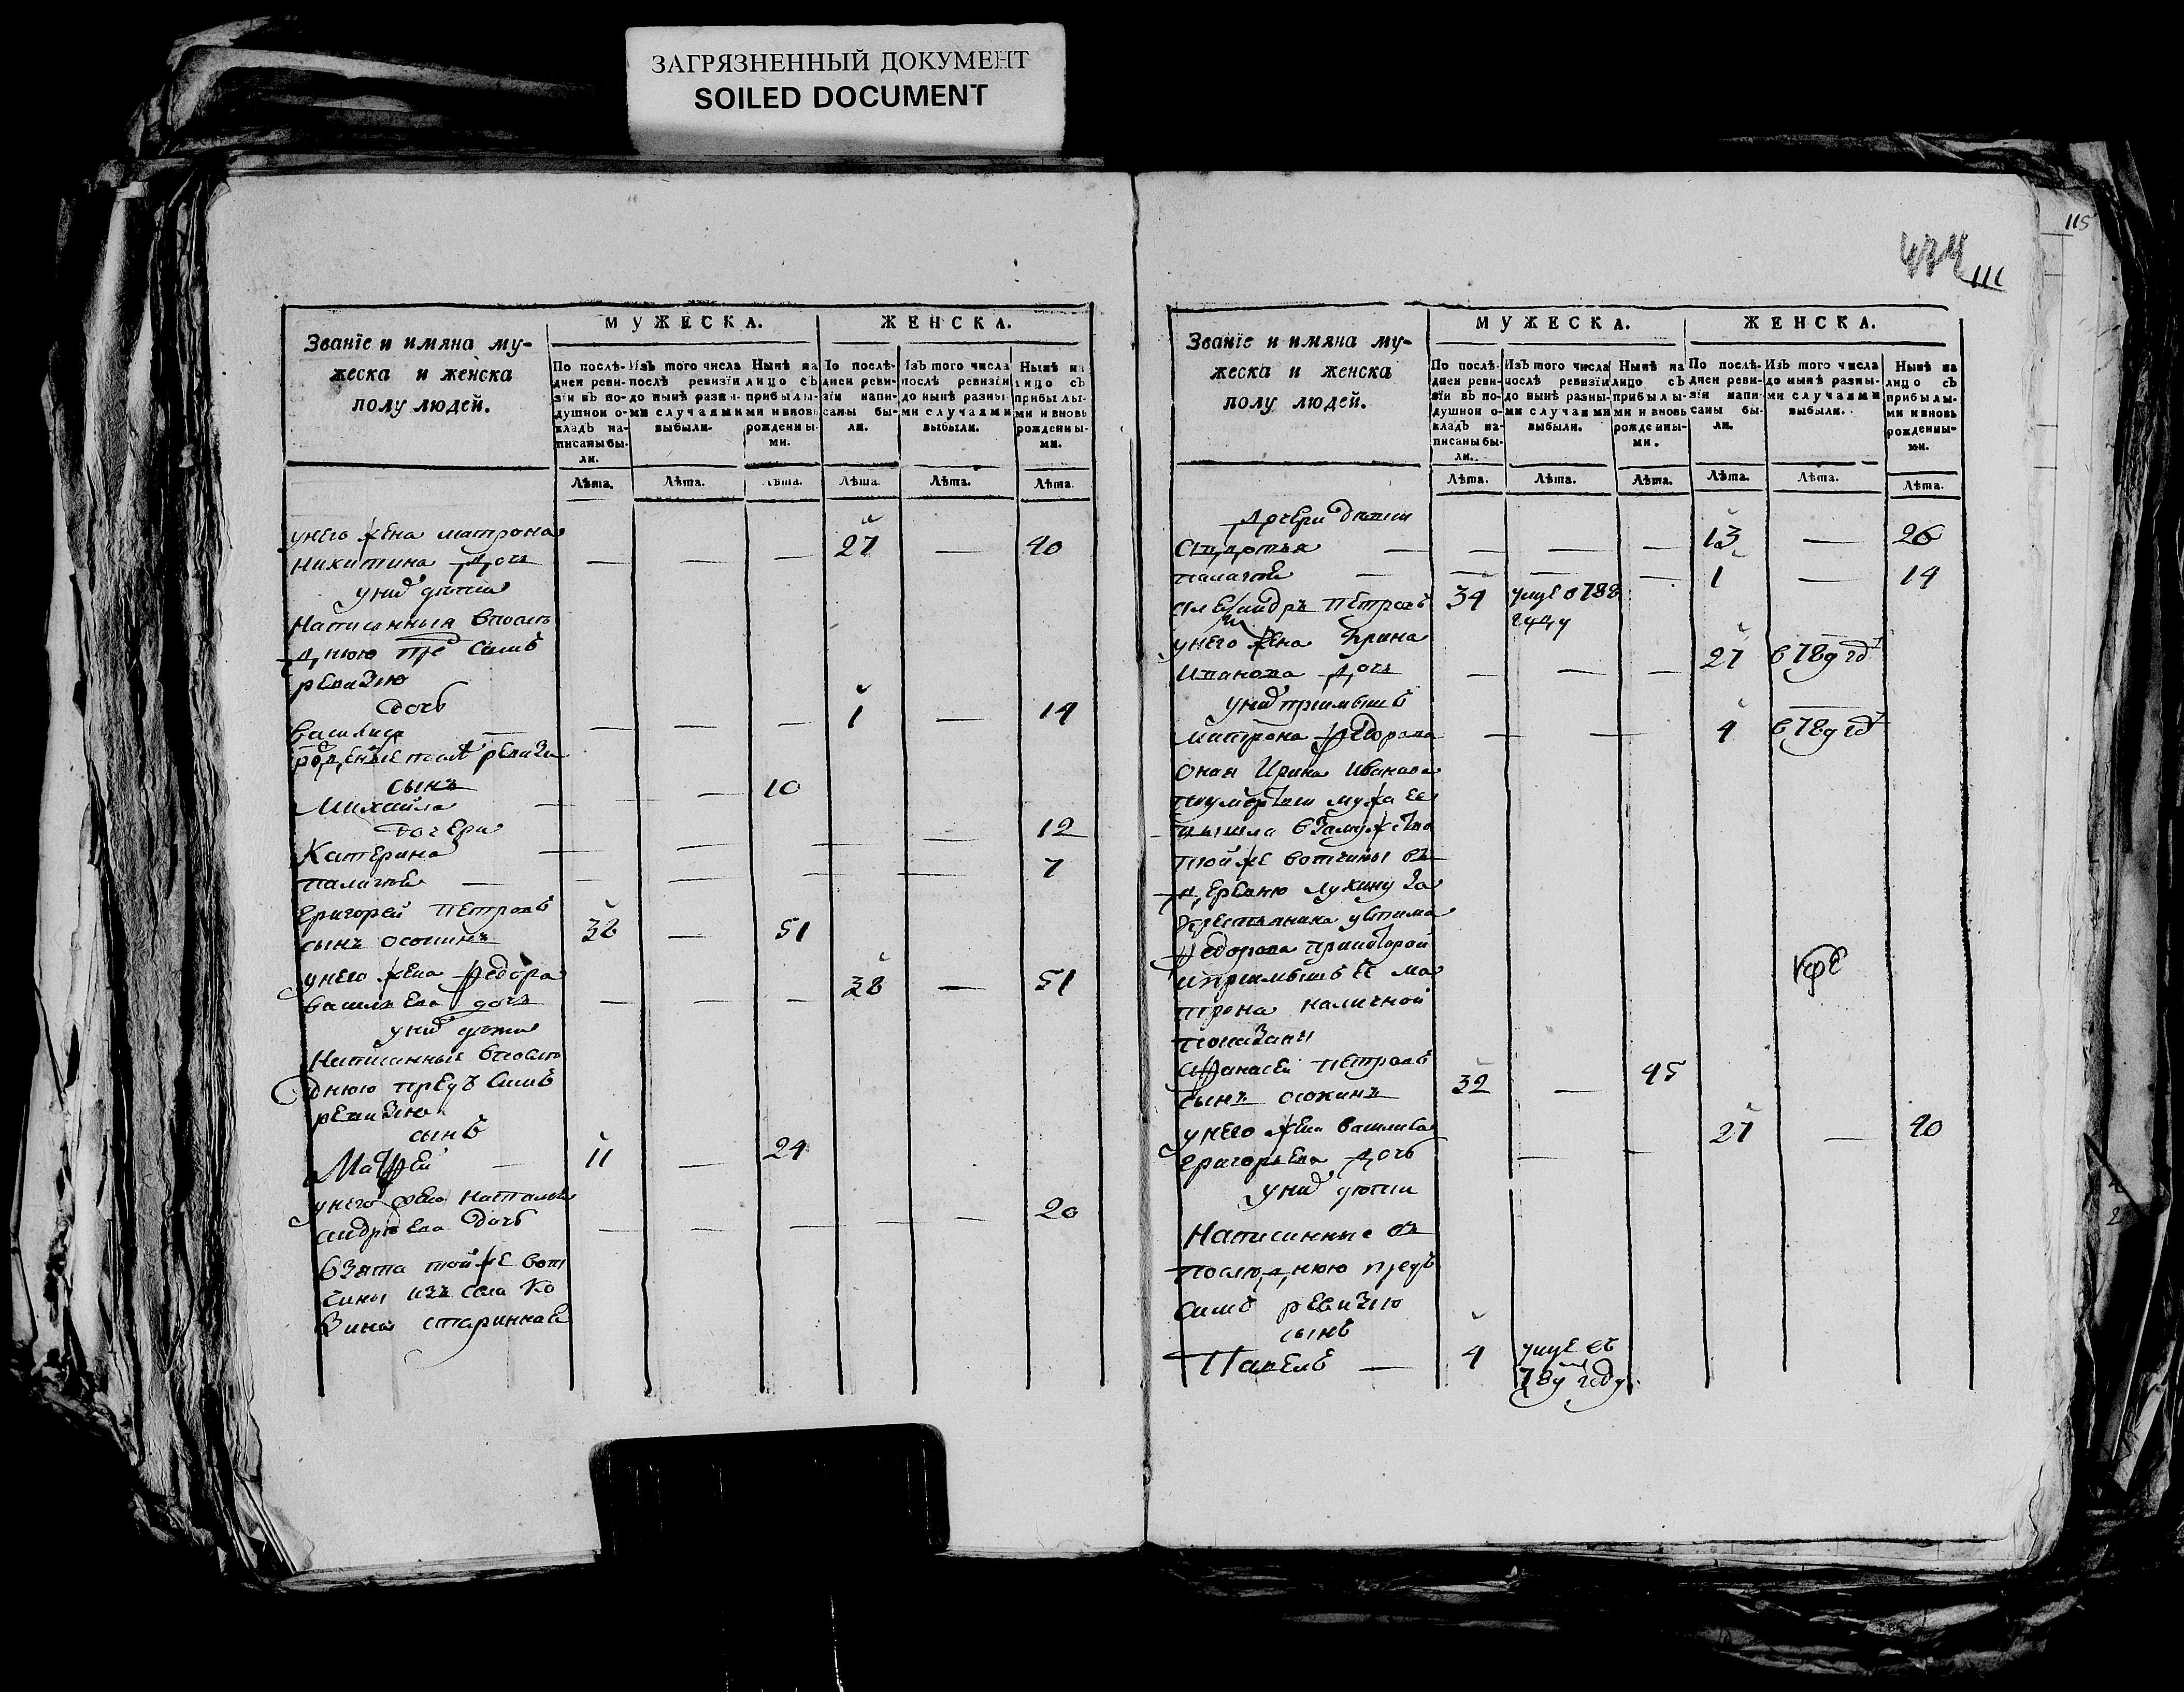 ЗАГРЯЗНЕННЫЙ ДОКУМЕНТ
SOILED DOCUMENT
115
111
Званїе и имяна му-
жеска и женска
полу людей.
МУЖЕСКА.
ЖЕНСКА.
По послѣ-
дней реви-
зїи въ по-
душной о-
кладъ на-
писаны бы-
ли.
Изъ того числа
послѣ ревизїи
до нынѣ разны-
ми случаями
выбыли.
Нынѣ на
лицо съ
прибылы-
ми и вновь
рожденны-
ми.
По послѣ-
дней реви-
зїи напи-
саны бы-
ли.
Изъ того числа
послѣ ревизїи
до нынѣ разны-
ми случаями
выбыли.
Нынѣ на
лицо съ
прибылы-
ми и вновь
рожденны-
ми.
Лѣта. Лѣта. Лѣта. Лѣта. Лѣта. Лѣта.
унего жена матрона
никитина дочь — — — 27 — 40
уних дети
Написанныя впослѣ
днюю пред симъ
ревизию
дочь
василиса — — — 1 — 14
рожденые после ревизи
сынъ
Михайла — — 10
дочери
Катерина — — — — 12
палагея — — — — 7
Григорей Петровъ
сынъ осокинъ 38 — 51
унего жена федора
васильева дочь — — — 38 — 51
уних дети
Написанные впослѣ
днюю предъ симъ
ревизию
сынъ
Матфей — 11 — 24
унего жена наталья
андреева дочь — — — — — 20
взята тойже вот
чины изъ села Ко
зина старинная
Званїе и имяна му-
жеска и женска
полу людей.
МУЖЕСКА.
ЖЕНСКА.
По послѣ-
дней реви-
зїи въ по-
душной о-
кладъ на-
писаны бы-
ли.
Изъ того числа
послѣ ревизїи
до нынѣ разны-
ми случаями
выбыли.
Нынѣ на
лицо съ
прибылы-
ми и вновь
рожденны-
ми.
По послѣ-
дней реви-
зїи напи-
саны бы-
ли.
Изъ того числа
до нынѣ разны-
ми случаями
выбыли.
Нынѣ на
лицо съ
прибылы-
ми и вновь
рожденны-
ми.
Лѣта. Лѣта. Лѣта. Лѣта. Лѣта. Лѣта.
дочери
Авдотья — — — — 13 — 26
палагея — — — — 1 — 14
александръ Петровъ 34 788
году
унего жена Ирина
Иванова дочь — — — 27
уних приимышъ
матрона федорова — — 4
Оная Ирина Иванова
поумертвии мужа ее
вышла взамужство
тойже вотчины въ
деревню лукину за
крестьянина
федорова при которой
иприимышъ ее ма
трона наличной
показаны
Афанасей Петровъ
сынъ осокинъ 32 — 45
унего жена василиса
григорьева дочь — — 27 — 40
уних дети
Написанные въ
последнюю предъ
симъ ревизию
сынъ
Павелъ — 4
году